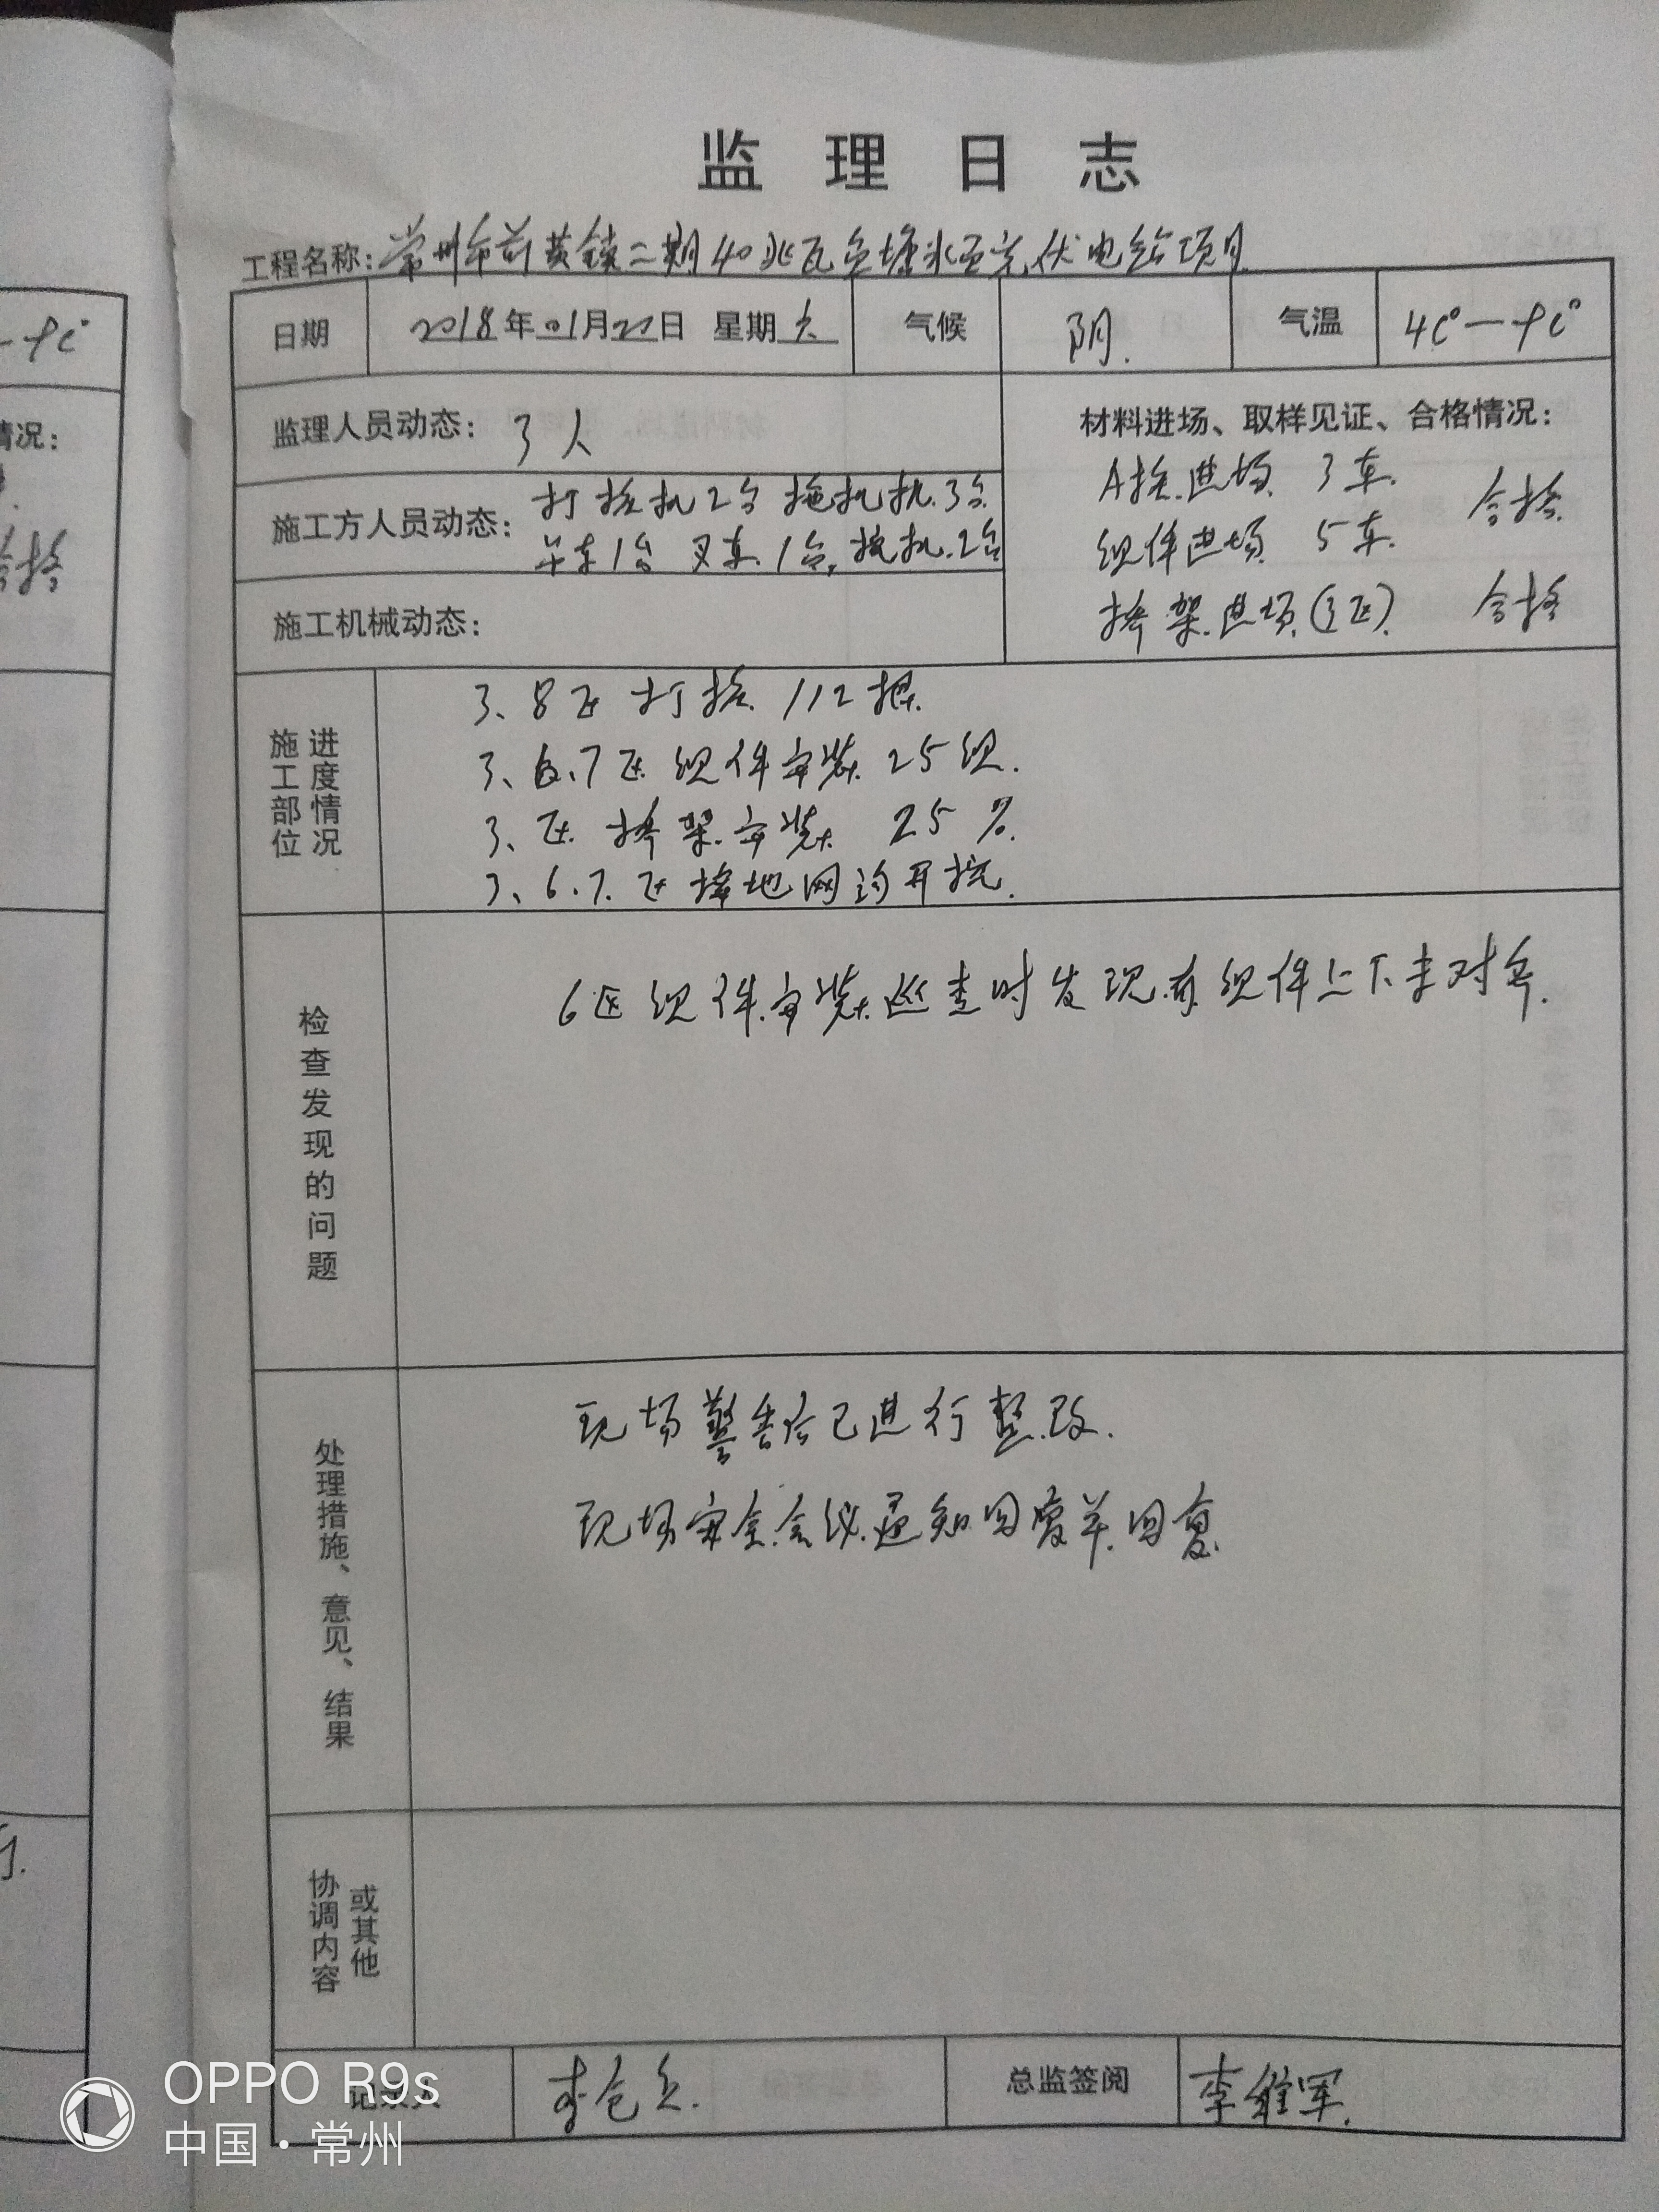 监理日志
工程名称：常州市前黄镇二期40兆瓦鱼塘水面光伏电站项目
日期 2018年01月22日 星期六 气候 阴. 气温 4C°—9C°
监理人员动态： 3人
材料进场、取样见证、合格情况：
A桩进场 3车. 合格
组件进场 5车.
桥架进场(3区). 合格
施工方人员动态：打桩机2台 拖机机.3台
吊车1台 叉车.1台,挖机.2台
施工机械动态：
施工部位 进度情况
3、8区打桩 112根.
3、6、7区组件安装25组.
3、区桥架安装 25%.
3、6.7.区接地网沟开挖.
检查发现的问题
6区组件安装巡查时发现有组件上下未对齐.
处理措施、意见、结果
现场警告后已进行整改.
现场安全会议通知回复单回复
协调内容 或其他
记录人 总监签阅 李维军.
一9C°
情况：
合格
OPPO R9s
中国·常州